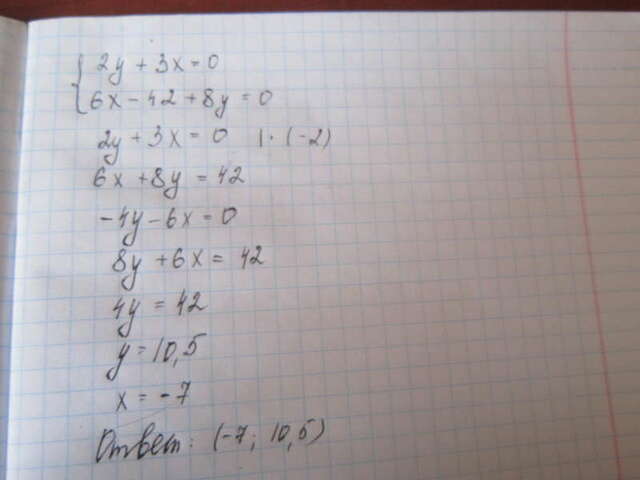 { 2y + 3x = 0
6x - 42 + 8y = 0
2y + 3x = 0 | · (-2)
6x + 8y = 42
-4y - 6x = 0
8y + 6x = 42
4y = 42
y = 10,5
x = -7
Ответ: (-7; 10,5)